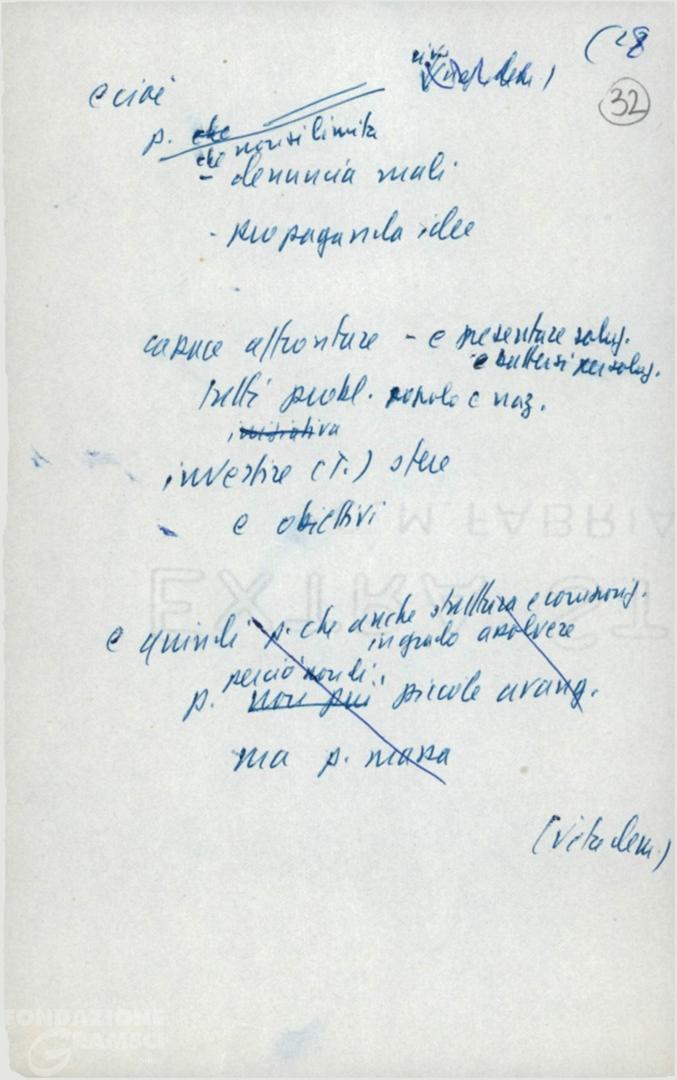 (28
32
e cioè
p. che
che non si limita
- denuncia mali
- propaganda idee
capace affrontare - e presentare soluz.
e battersi per soluz.
tutti probl. popolo e naz.
iniziativa
investire (T.) sfere
e obiettivi
e quindi p. che anche struttura e comunq.
in grado assolvere
perciò non di
p. non più piccole avang.
ma p. massa
(vita dem.)
M. FABRIA
EXTRA ST
FONDAZIONE
GRAMSCI